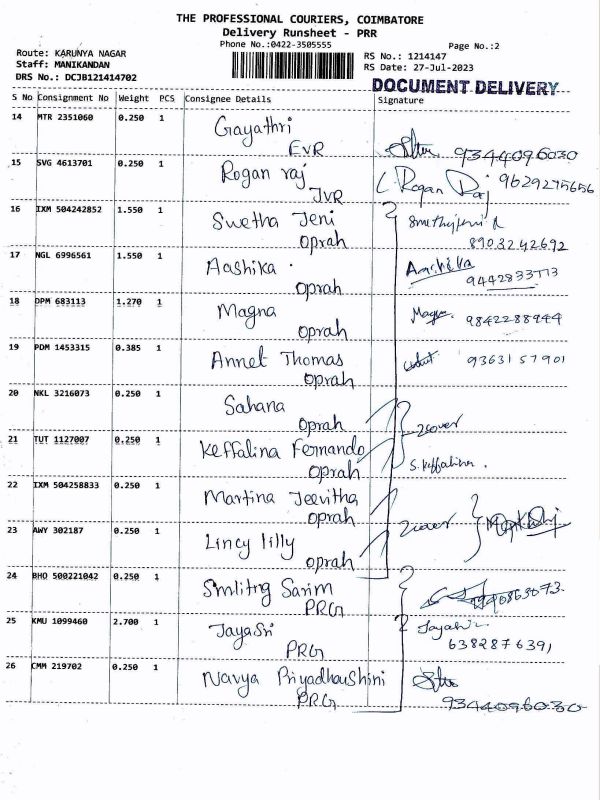 THE PROFESSIONAL COURIERS, COIMBATORE
Delivery Runsheet - PRR
Phone No.:0422-3505555
Page No.:2
Route: KARUNYA NAGAR
Staff: MANIKANDAN
DRS No.: DCJB121414702
RS No.: 1214147
RS Date: 27-Jul-2023
DOCUMENT DELIVERY
S No Consignment No Weight PCS Consignee Details Signature
14 MTR 2351060 0.250 1 Gayathri
EVR 9344096030
15 SVG 4613701 0.250 1 Rogan raj
JVR L. Rogan Raj 9629275656
16 IXM 504242852 1.550 1 Swetha Jeni
Oprah 8903242692
17 NGL 6996561 1.550 1 Aashika
Oprah Aashika 9442833773
18 DPM 683113 1.270 1 Magna
Oprah 9842288944
19 PDM 1453315 0.385 1 Annet Thomas
Oprah 9363157901
20 NKL 3216073 0.250 1 Sahana
Oprah 2cover
21 TUT 1127007 0.250 1 Keffalina Fernando
Oprah S. Keffalina.
22 IXM 504258833 0.250 1 Martina Jeevitha
Oprah
23 AWY 302187 0.250 1 Lincy lilly
Oprah 2cover
24 BHO 500221042 0.250 1 Smlitng Sarim
PRG
25 KMU 1099460 2.700 1 Jayasri
PRG 6382876391
26 CMM 219702 0.250 1 Navya Priyadhaushini
PRG 9344096030